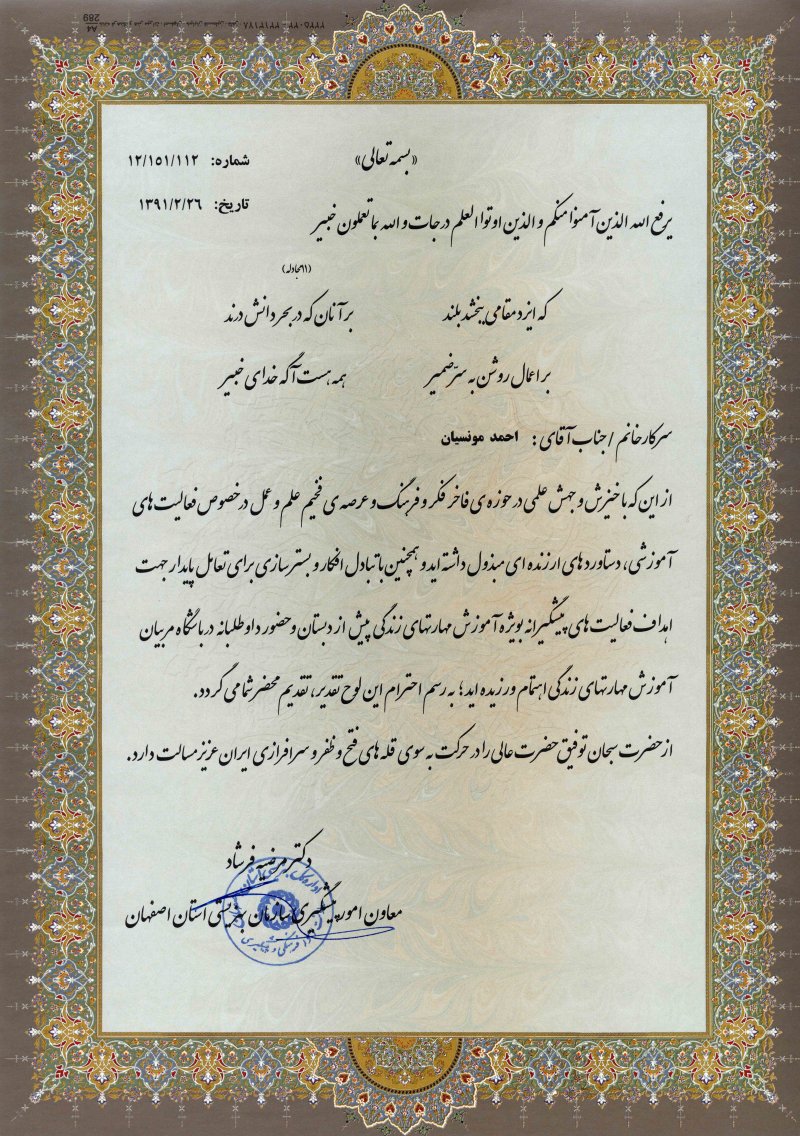 «بسمه تعالی»
شماره: ۱۲/۱۵۱/۱۱۲
تاریخ: ۱۳۹۱/۲/۲۶
یرفع الله الذین آمنوا منکم و الذین اوتوا العلم درجات و الله بما تعملون خبیر
(۱۱ مجادله)
که ایزد مقامی ببخشد بلند    بر آنان که در بحر دانش درند
بر اعمال روشن به سرّ ضمیر    همه هست آگه خدای خبیر
سرکار خانم / جناب آقای: احمد مونسیان
از این که با خیزش و جهش علمی در حوزه ی فاخر فکر و فرهنگ و عرصه ی فخیم علم و عمل در خصوص فعالیت های
آموزشی، دستاوردهای ارزنده ای مبذول داشته اید و همچنین با تبادل افکار و بسترسازی برای تعامل پایدار جهت
اهداف فعالیت های پیشگیرانه بویژه آموزش مهارتهای زندگی پیش از دبستان و حضور داوطلبانه در باشگاه مربیان
آموزش مهارتهای زندگی اهتمام ورزیده اید؛ به رسم احترام این لوح تقدیر، تقدیم محضر شما می گردد.
از حضرت سبحان توفیق حضرت عالی را در حرکت به سوی قله های فتح و ظفر و سرافرازی ایران عزیز مسالت دارد.
دکتر مرضیه فرشاد
معاون امور پیشگیری سازمان بهزیستی استان اصفهان
A4
289